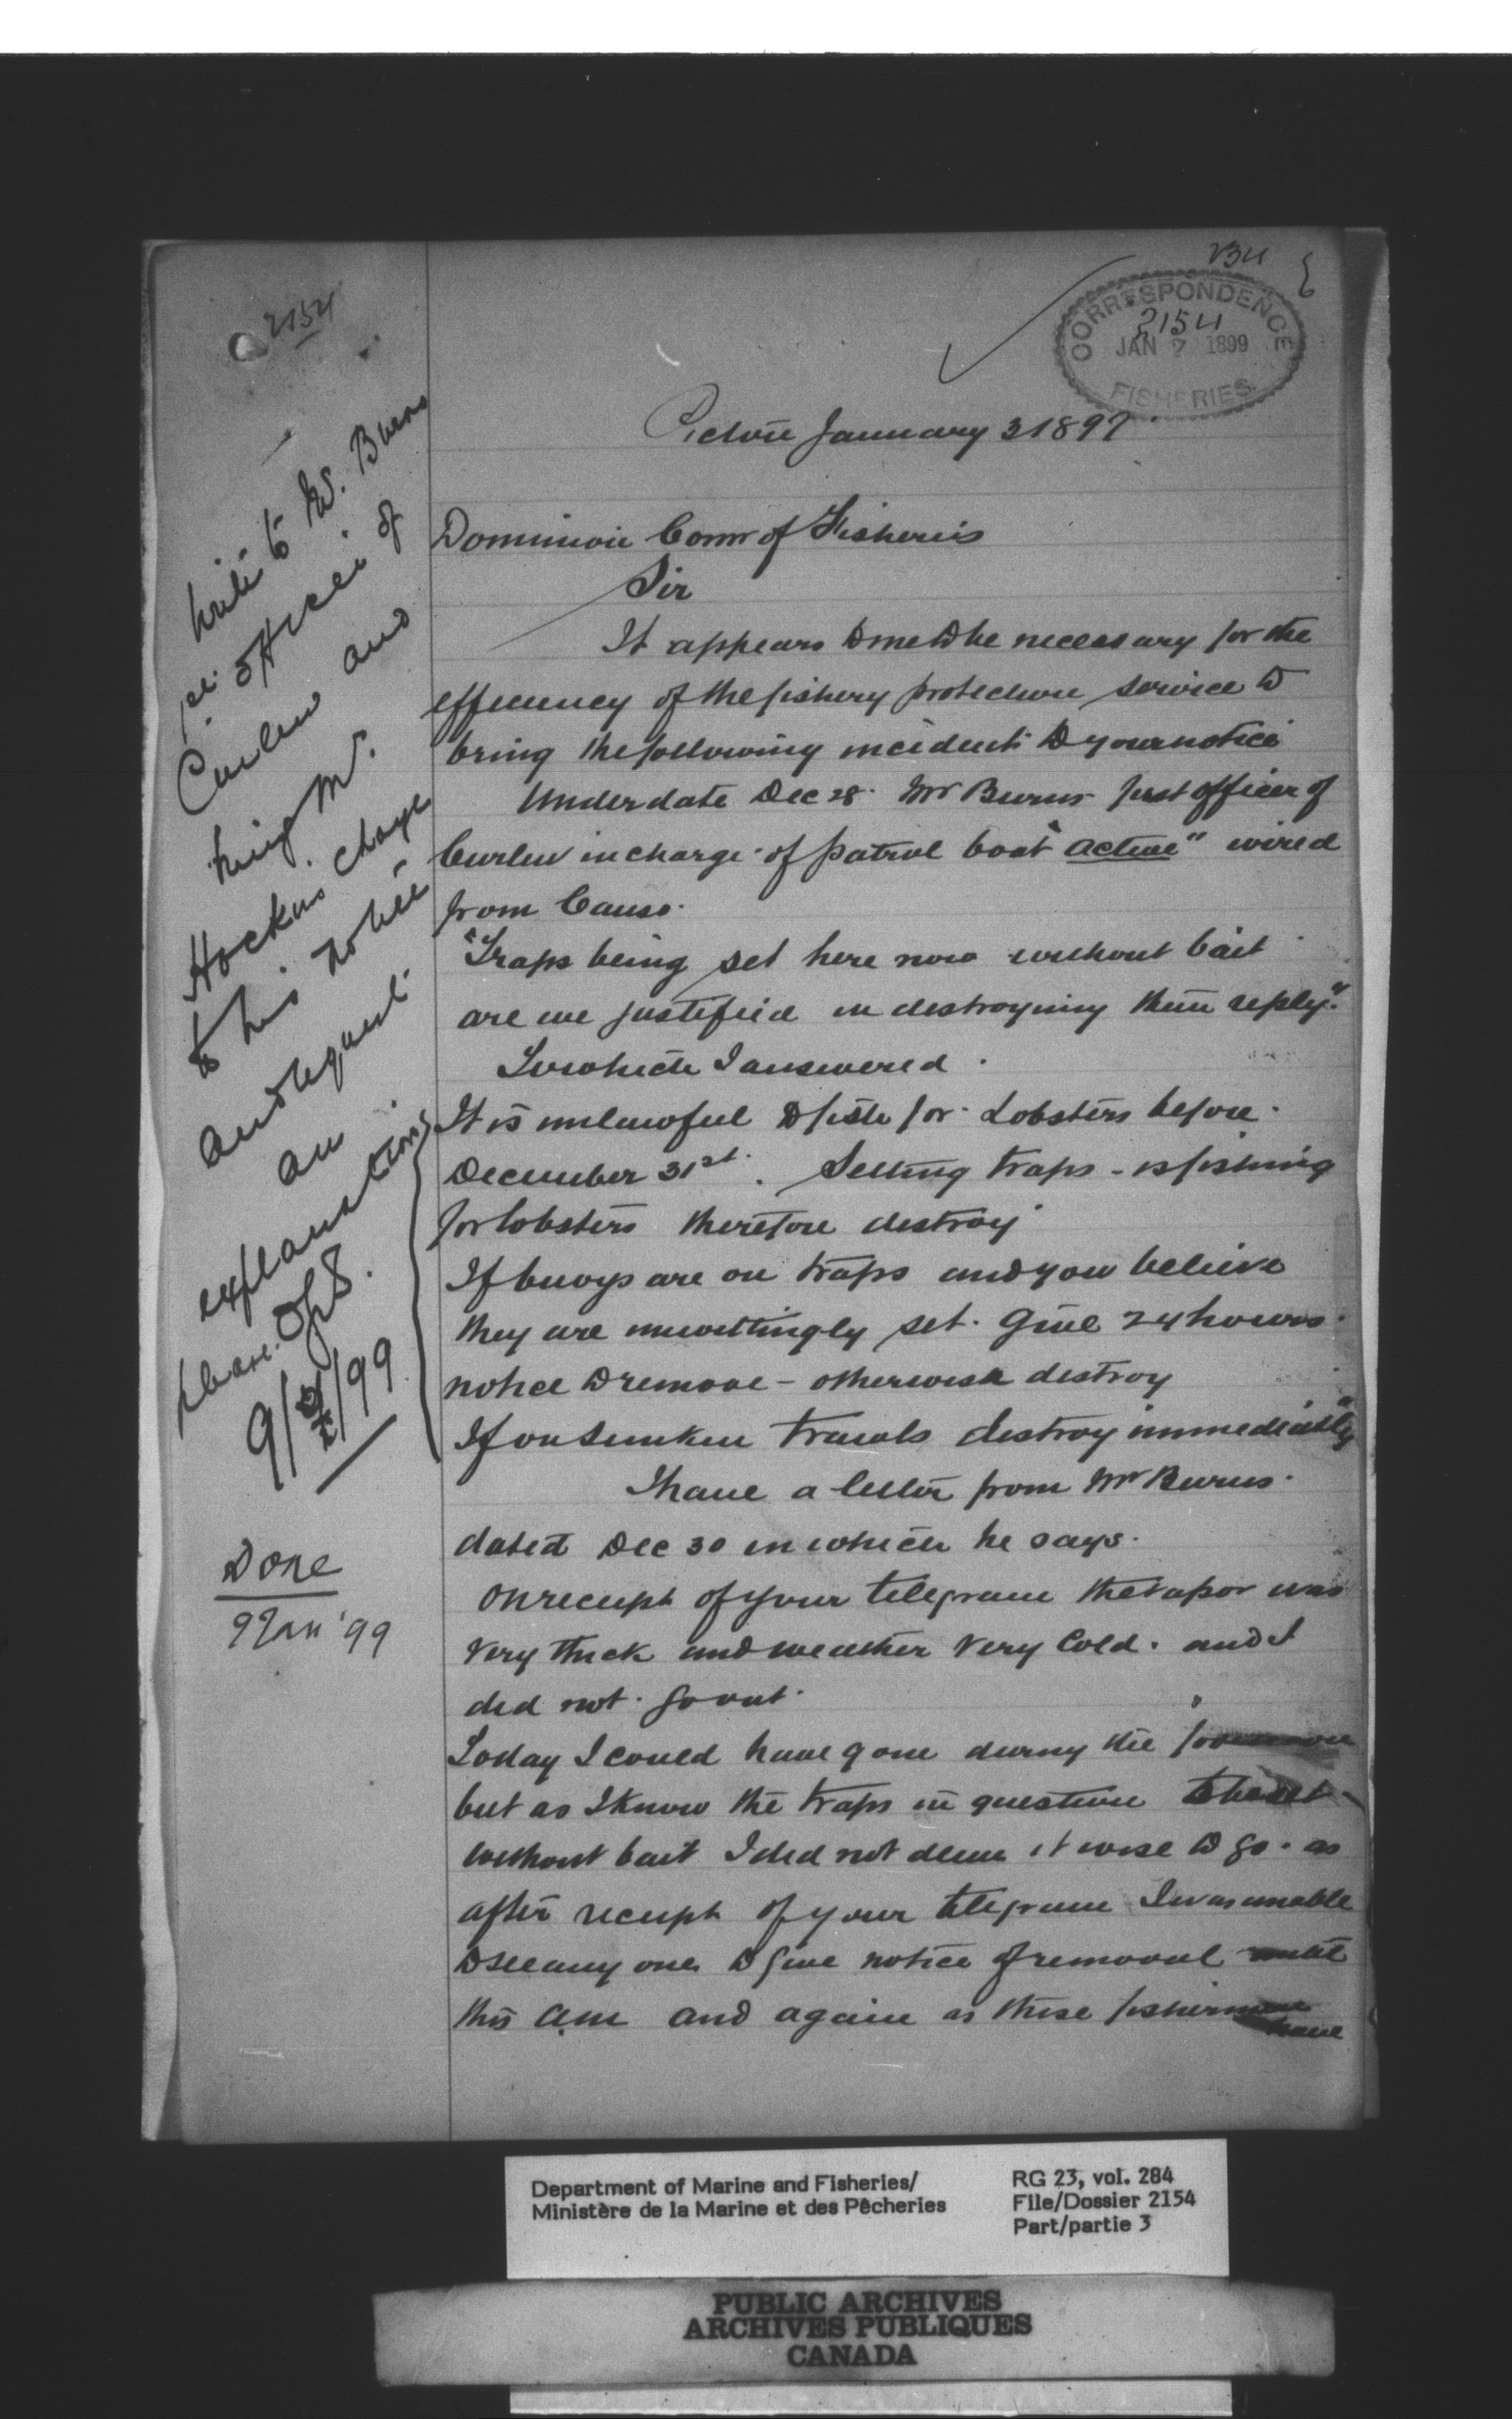 2154
234
CORRESPONDENCE
2154
JAN 7 1899
FISHERIES
Pictou January 3 1899
Dominion Comr of Fisheries
Sir
It appears to me to be necessary for the
efficiency of the fishery protection service to
bring the following incident to your notice
Under date Dec 28. Mr Burns first officer of
Curlew in charge of patrol boat "Active" wired
from Canso.
"Traps being set here now without bait
are we justified in destroying them reply."
To which I answered.
It is unlawful to fish for Lobsters before
December 31st. Setting traps - is fishing
for lobsters therefore destroy
If buoys are on traps and you believe
they are unwittingly set. Give 24 hours
notice to remove - otherwise destroy
If on sunken trawls destroy immediately"
I have a letter from Mr Burns
dated Dec 30 in which he says.
On receipt of your telegram the vapor was
very thick and weather very Cold. and I
did not go out.
Today I could have gone during the forenoon
but as I know the traps in question to be set
without bait I did not deem it wise to go. as
after receipt of your telegram I was unable
to see any one to give notice of removal until
this am and again as these fishermen
have
Write to Mr. Burns
officer of
Curlew and
bring Mr.
Hockins charge
to his notice
and request
an
explanation
please. 
9/1/99
Done
9 Jan '99
Department of Marine and Fisheries/
Ministère de la Marine et des Pêcheries
RG 23, vol. 284
File/Dossier 2154
Part/partie 3
PUBLIC ARCHIVES
ARCHIVES PUBLIQUES
CANADA